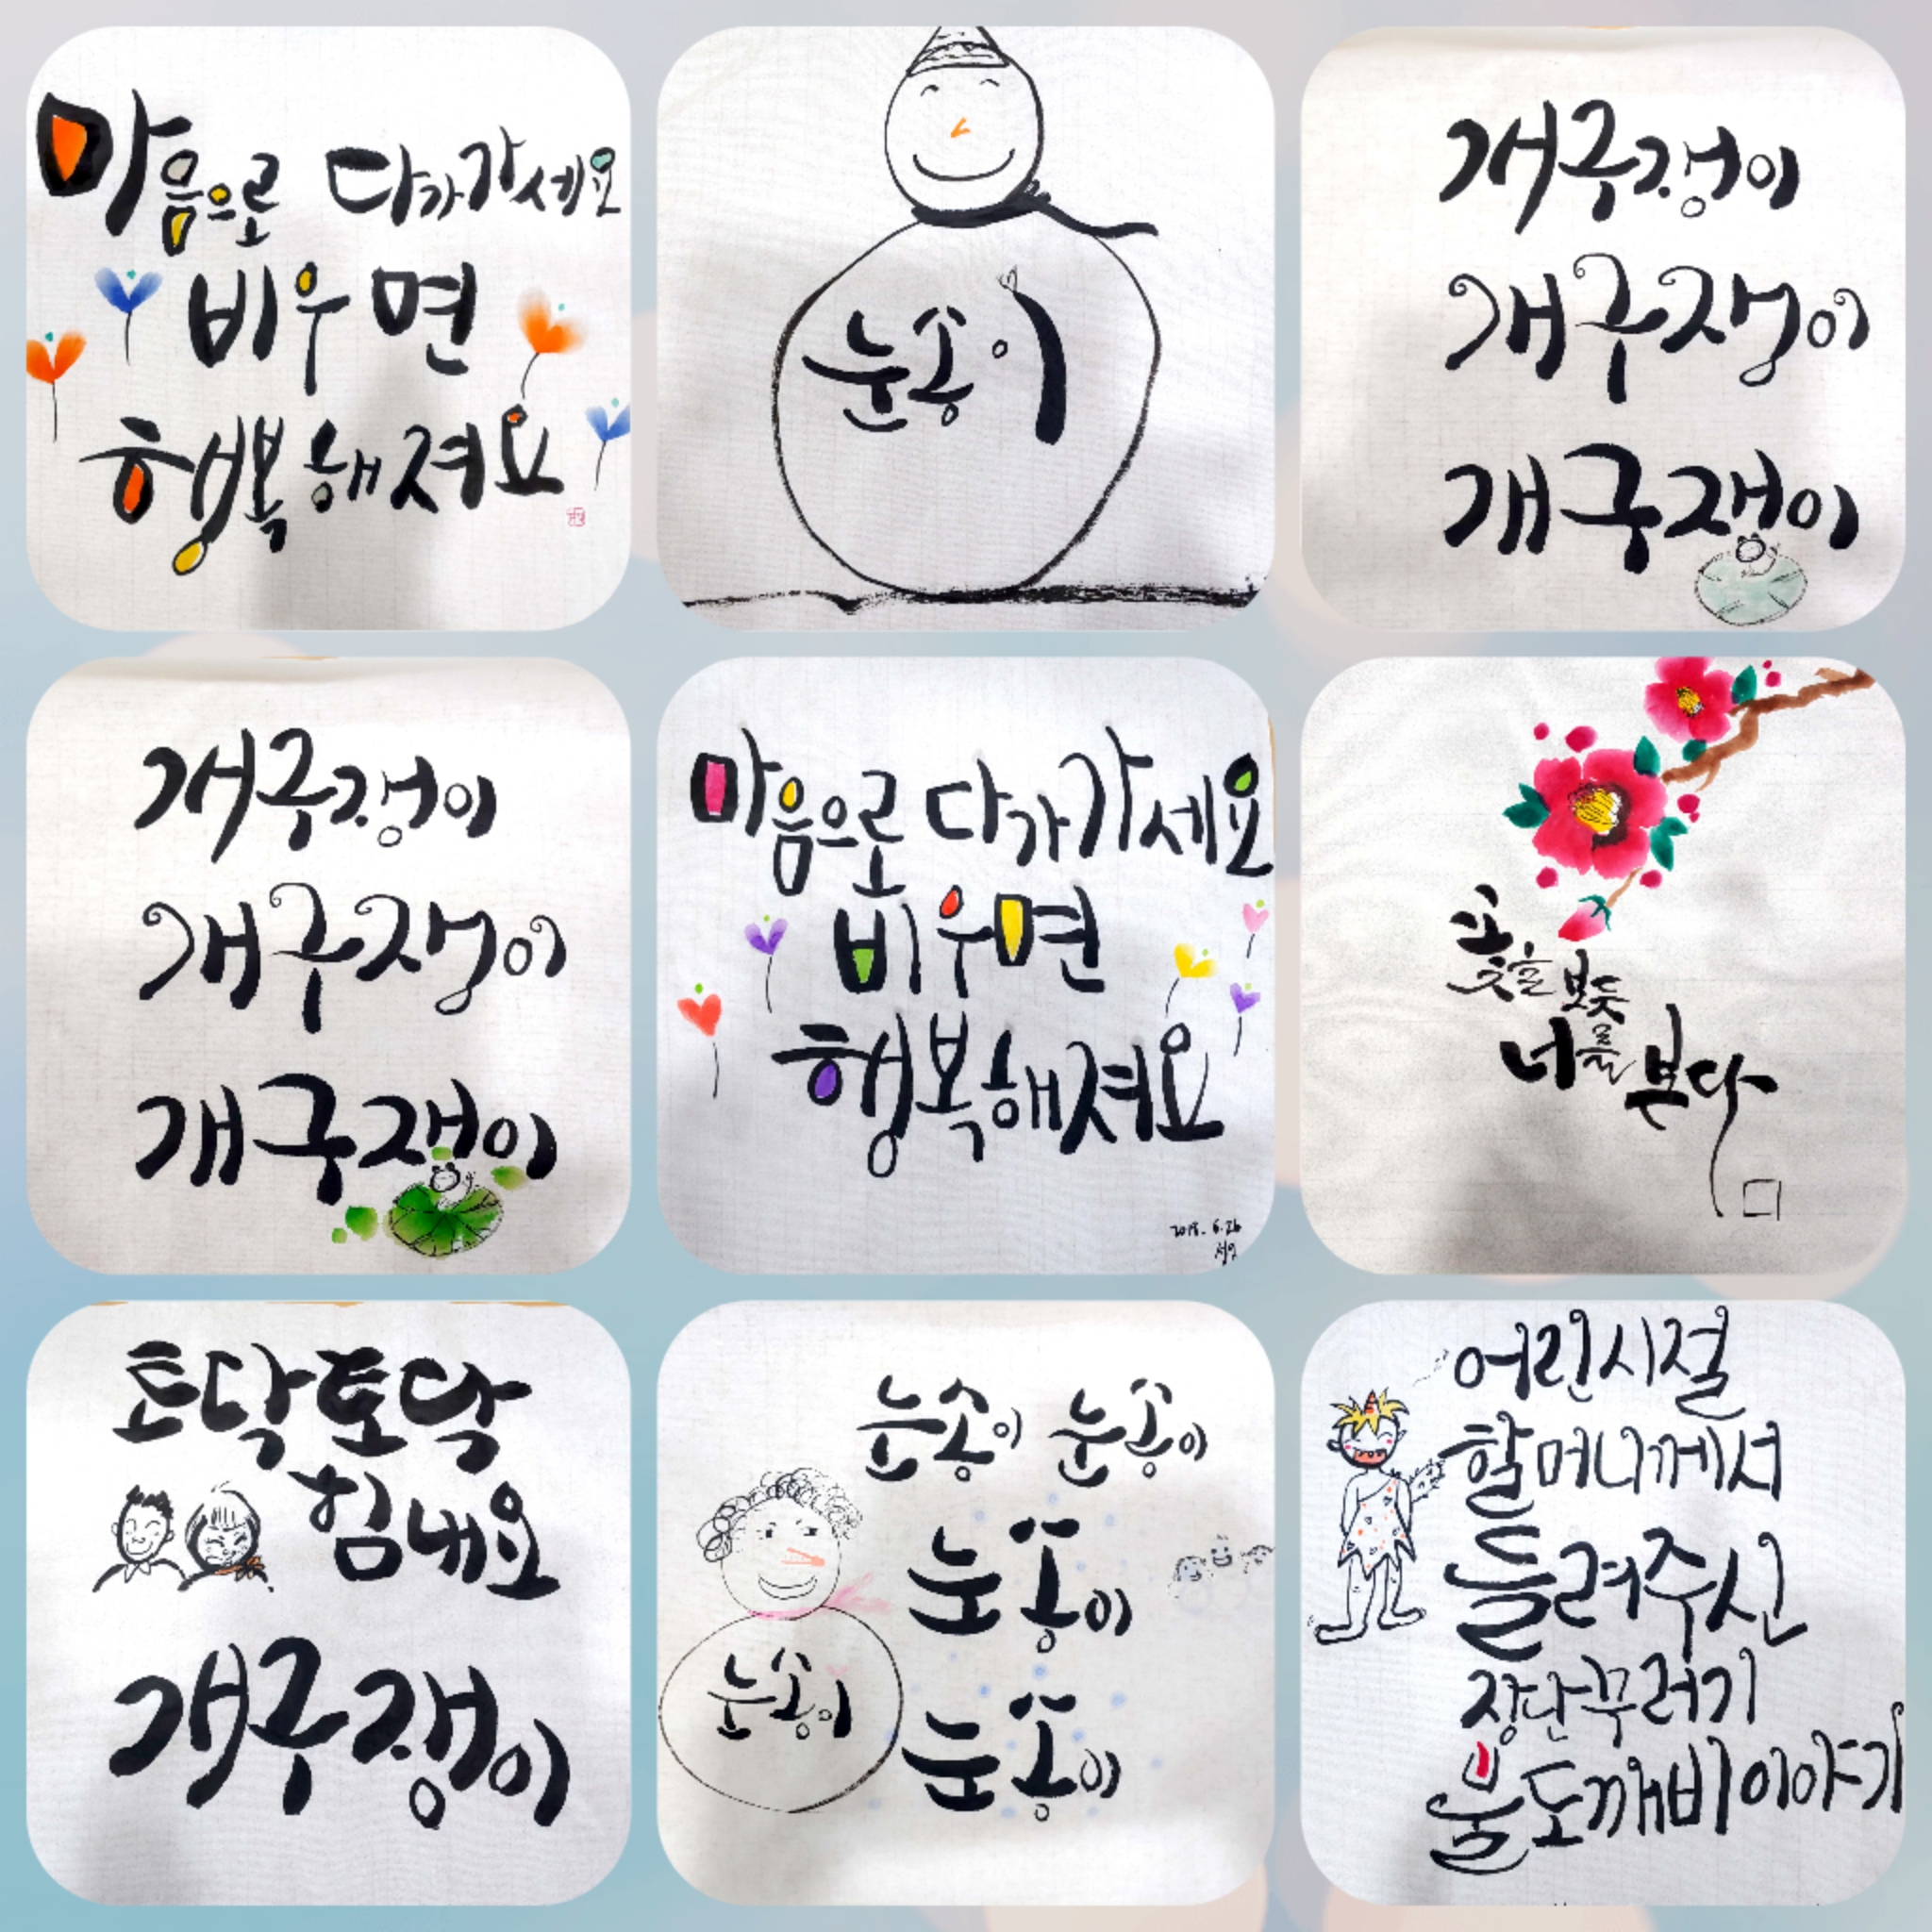 마음으로 다가가세요
비우면
행복해져요
눈송이
개구쟁이
개구쟁이
개구쟁이
개구쟁이
개구쟁이
개구쟁이
마음으로 다가가세요
비우면
행복해져요
2018. 6. 26
꽃을 보듯
너를 본다
토닥토닥
힘내요
개구쟁이
눈송이 눈송이
눈송이
눈송이
눈송이
어린시절
할머니께서
들려주신
장난꾸러기
불도깨비이야기